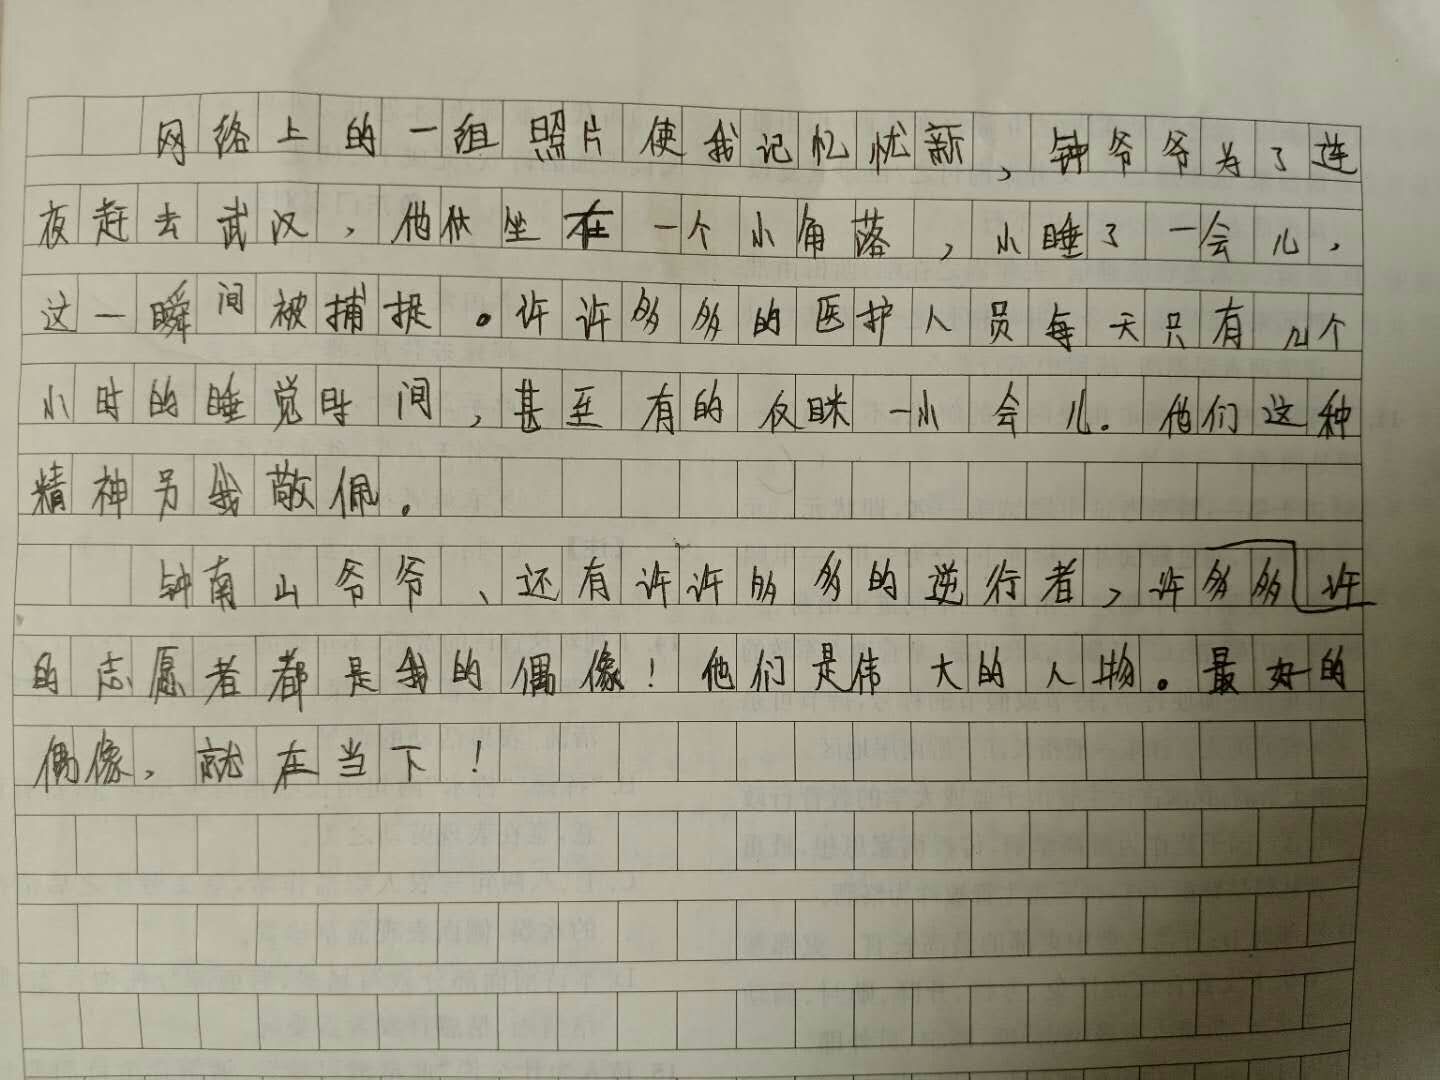 网络上的一组照片使我记忆忧新，钟爷爷为了连
夜赶去武汉，他休坐在一个小角落，小睡了一会儿，
这一瞬间被捕捉。许许多多的医护人员每天只有几个
小时的睡觉时间，甚至有的仅眯一小会儿。他们这种
精神另我敬佩。
钟南山爷爷、还有许许多多的逆行者，许多多许
的志愿者都是我的偶像！他们是伟大的人物。最好的
偶像，就在当下！